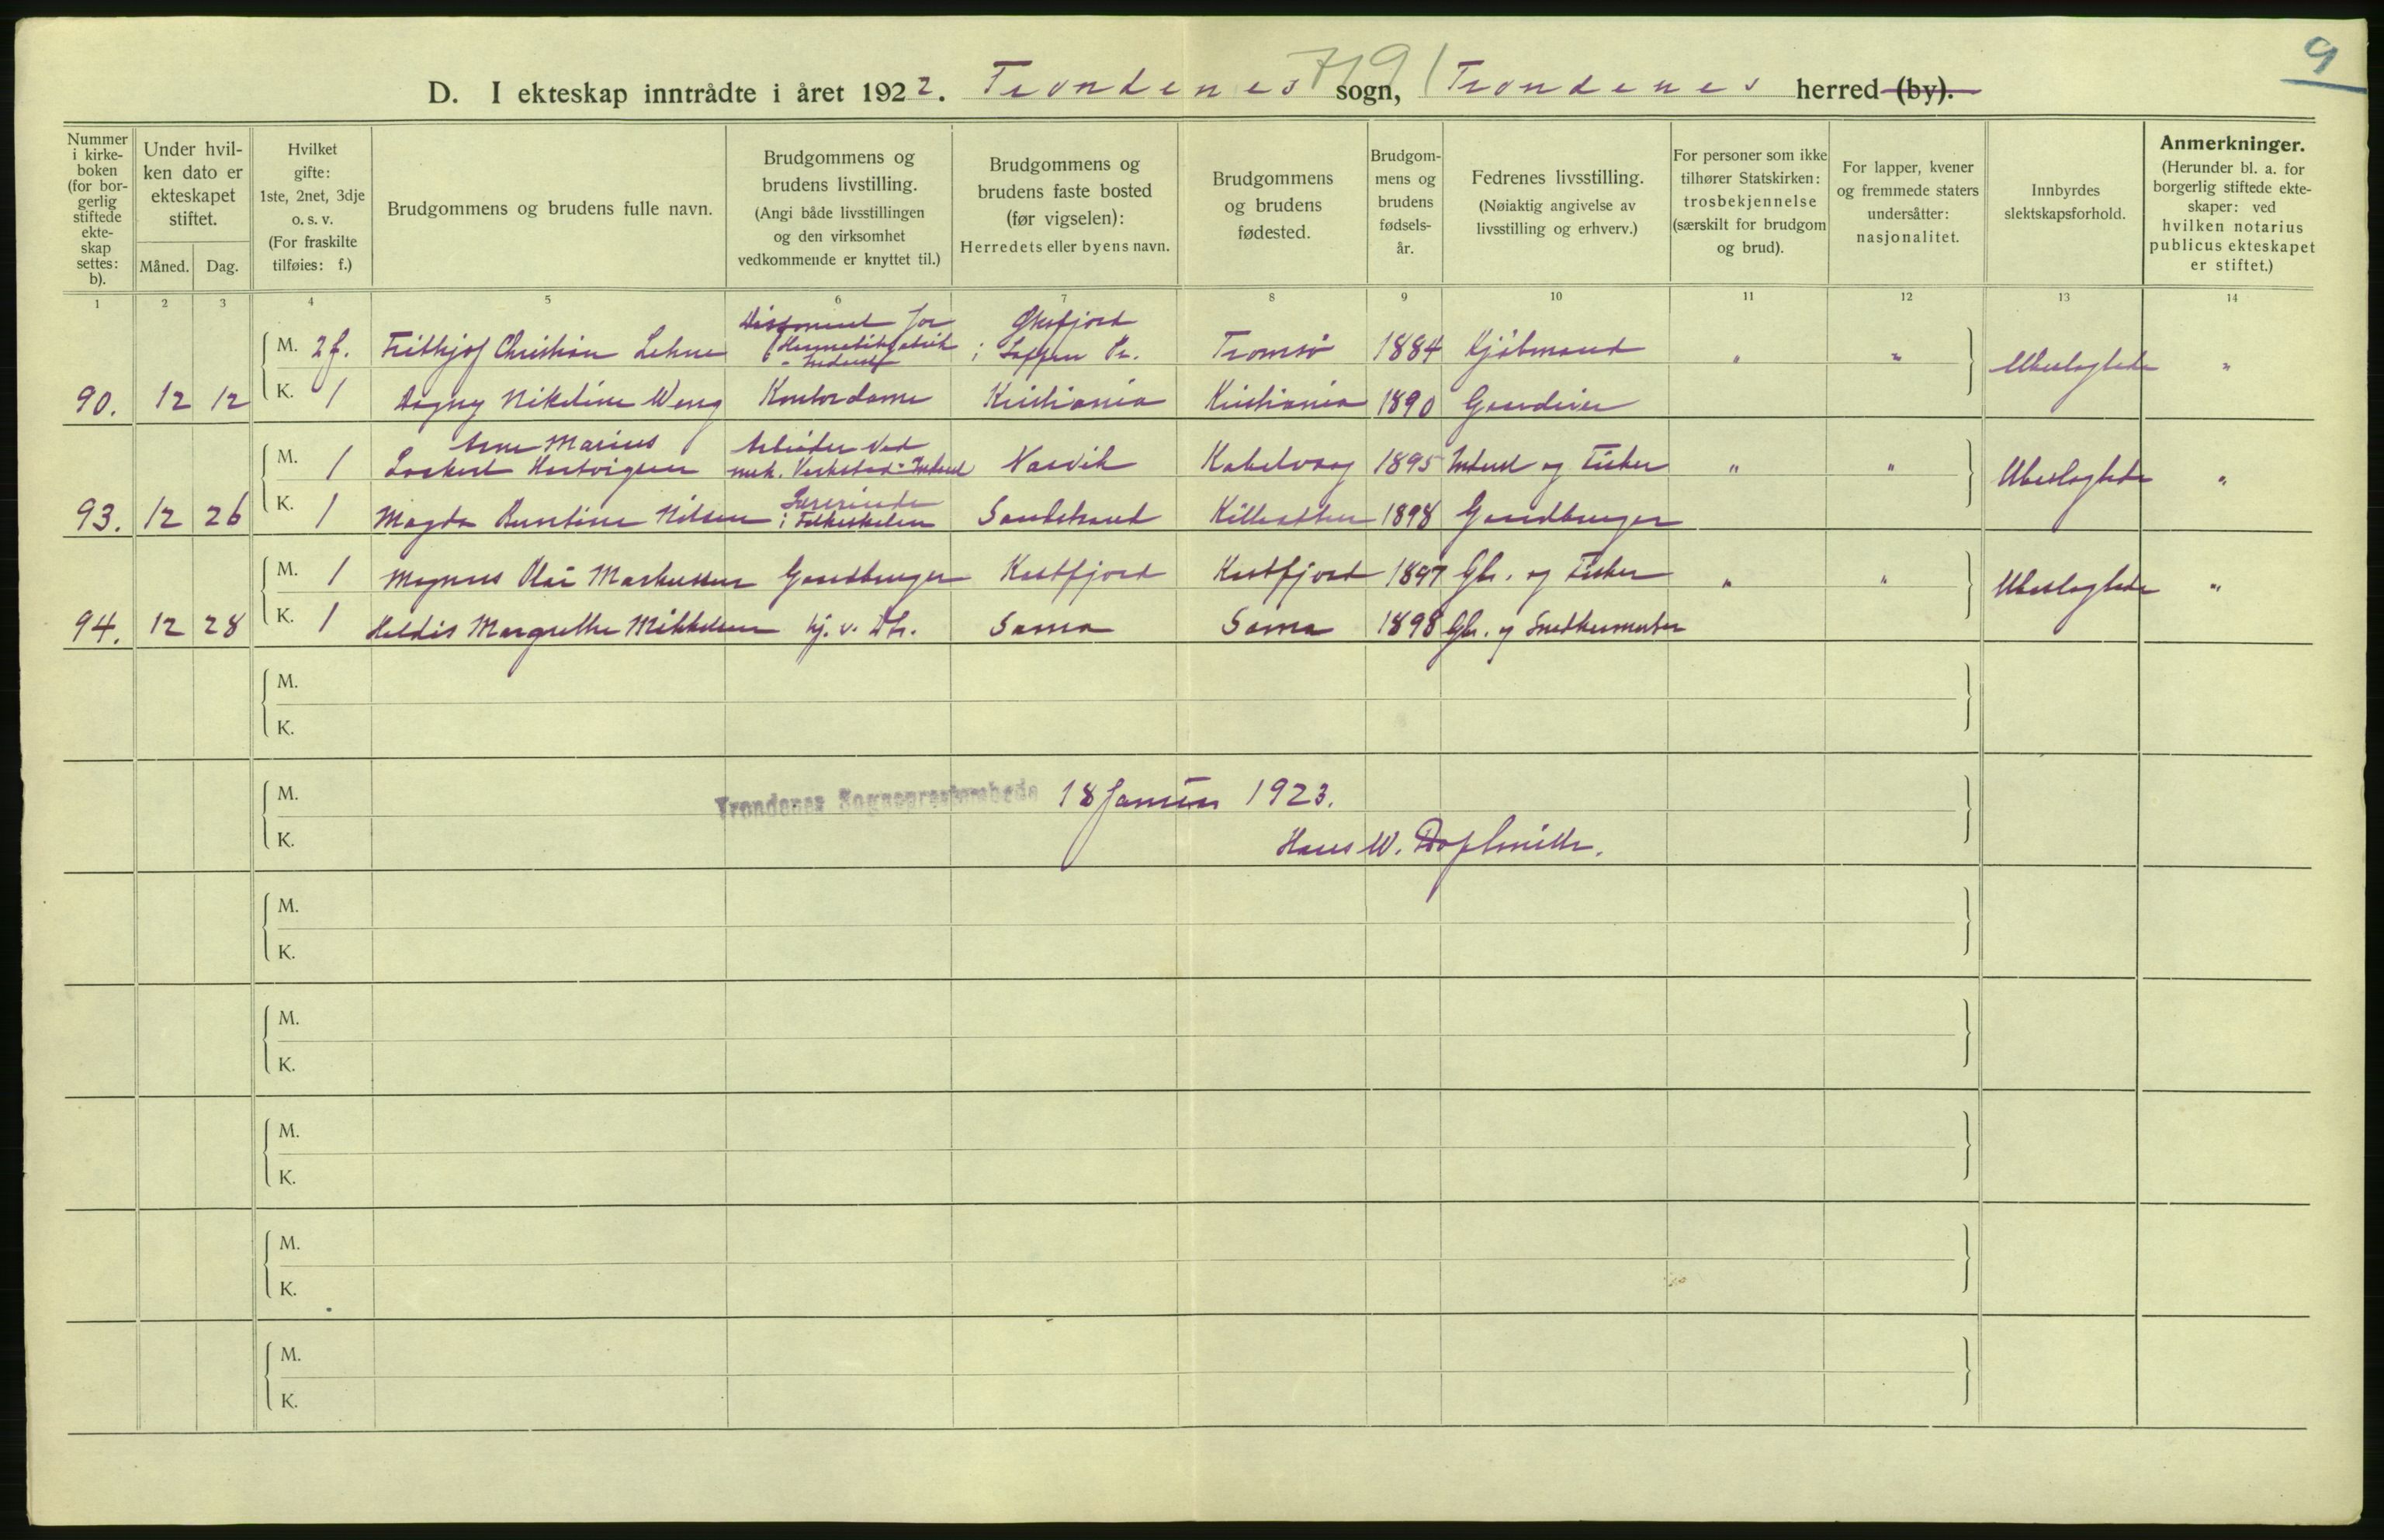 9
719
D. I ekteskap inntrådte i året 1922. Trondenes sogn, Trondenes herred (by).
Nummer i kirke-boken (for bor-gerlig stiftede ekte-skap settes: b).
Under hvil-ken dato er ekteskapet stiftet.
Måned. Dag.
Hvilket gifte: 1ste, 2net, 3dje o. s. v. (For fraskilte tilføies: f.)
Brudgommens og brudens fulle navn.
Brudgommens og brudens livstilling. (Angi både livsstillingen og den virksomhet vedkommende er knyttet til.)
Brudgommens og brudens faste bosted (før vigselen): Herredets eller byens navn.
Brudgommens og brudens fødested.
Brudgom-mens og brudens fødsels-år.
Fedrenes livsstilling. (Nøiaktig angivelse av livsstilling og erhverv.)
For personer som ikke tilhører Statskirken: trosbekjennelse (særskilt for brudgom og brud).
For lapper, kvener og fremmede staters undersåtter: nasjonalitet.
Innbyrdes slektskapsforhold.
Anmerkninger. (Herunder bl. a. for borgerlig stiftede ekte-skaper: ved hvilken notarius publicus ekteskapet er stiftet.)
1 2 3 4 5 6 7 8 9 10 11 12 13 14
M. 2f. Frithjof Christian Lehne Disponent for Hermetikfabrik Øksfjord i Loppen Pr. Tromsø 1884 Kjøbmand " " Ubeslægtede "
90. 12 12 K. 1 Dagny Nikoline Weng Kontordame Kristiania Kristiania 1890 Gaardeier
M. 1 Arne Marius Lockert Hartvigsen Arbeider ved mek. Verksted Narvik Kabelvaag 1895 og Fisker " " Ubeslægtede "
93. 12 26 K. 1 Magda Nilsen Lærerinde i Folkeskolen Sandstrand 1898 Gaardbruger
M. 1 Magnus Olai Markussen Gaardbruger Kastfjord Kastfjord 1897 Gbr. og Fisker " " Ubeslægtede "
94. 12 28 K. 1 Heldis Margrethe Mikkelsen hj. v. Dtr. Sama Sama 1898 Gbr. og Snedkermester
M.
K.
M. Trondenes Sogneprestembede 18 Januar 1923.
K. Hans W.
M.
K.
M.
K.
M.
K.
M.
K.
M.
K.